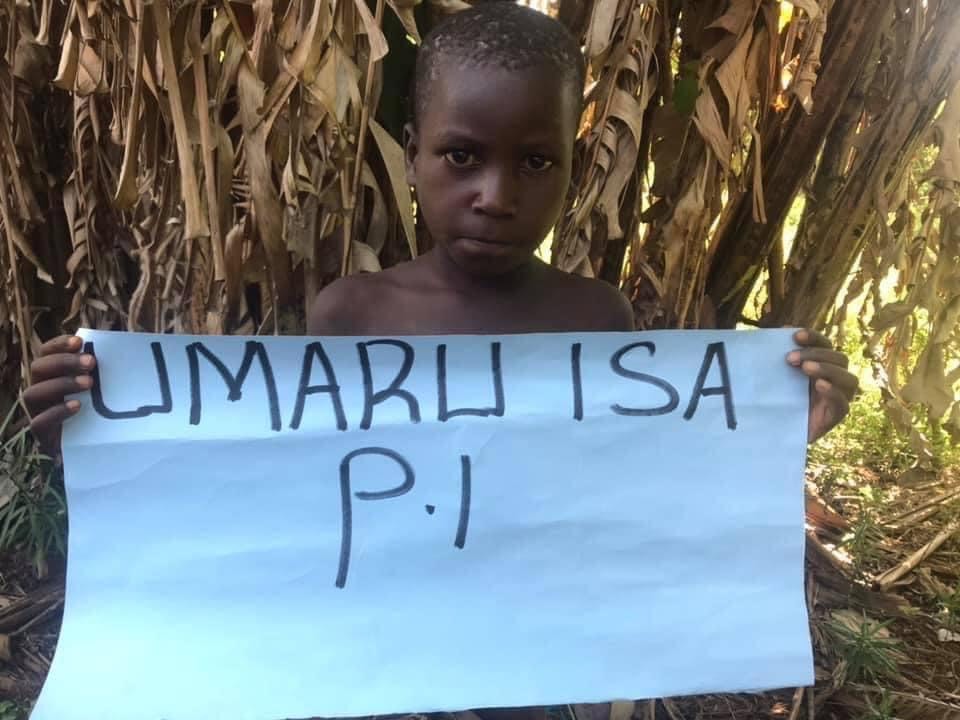 UMARU ISA
P.I